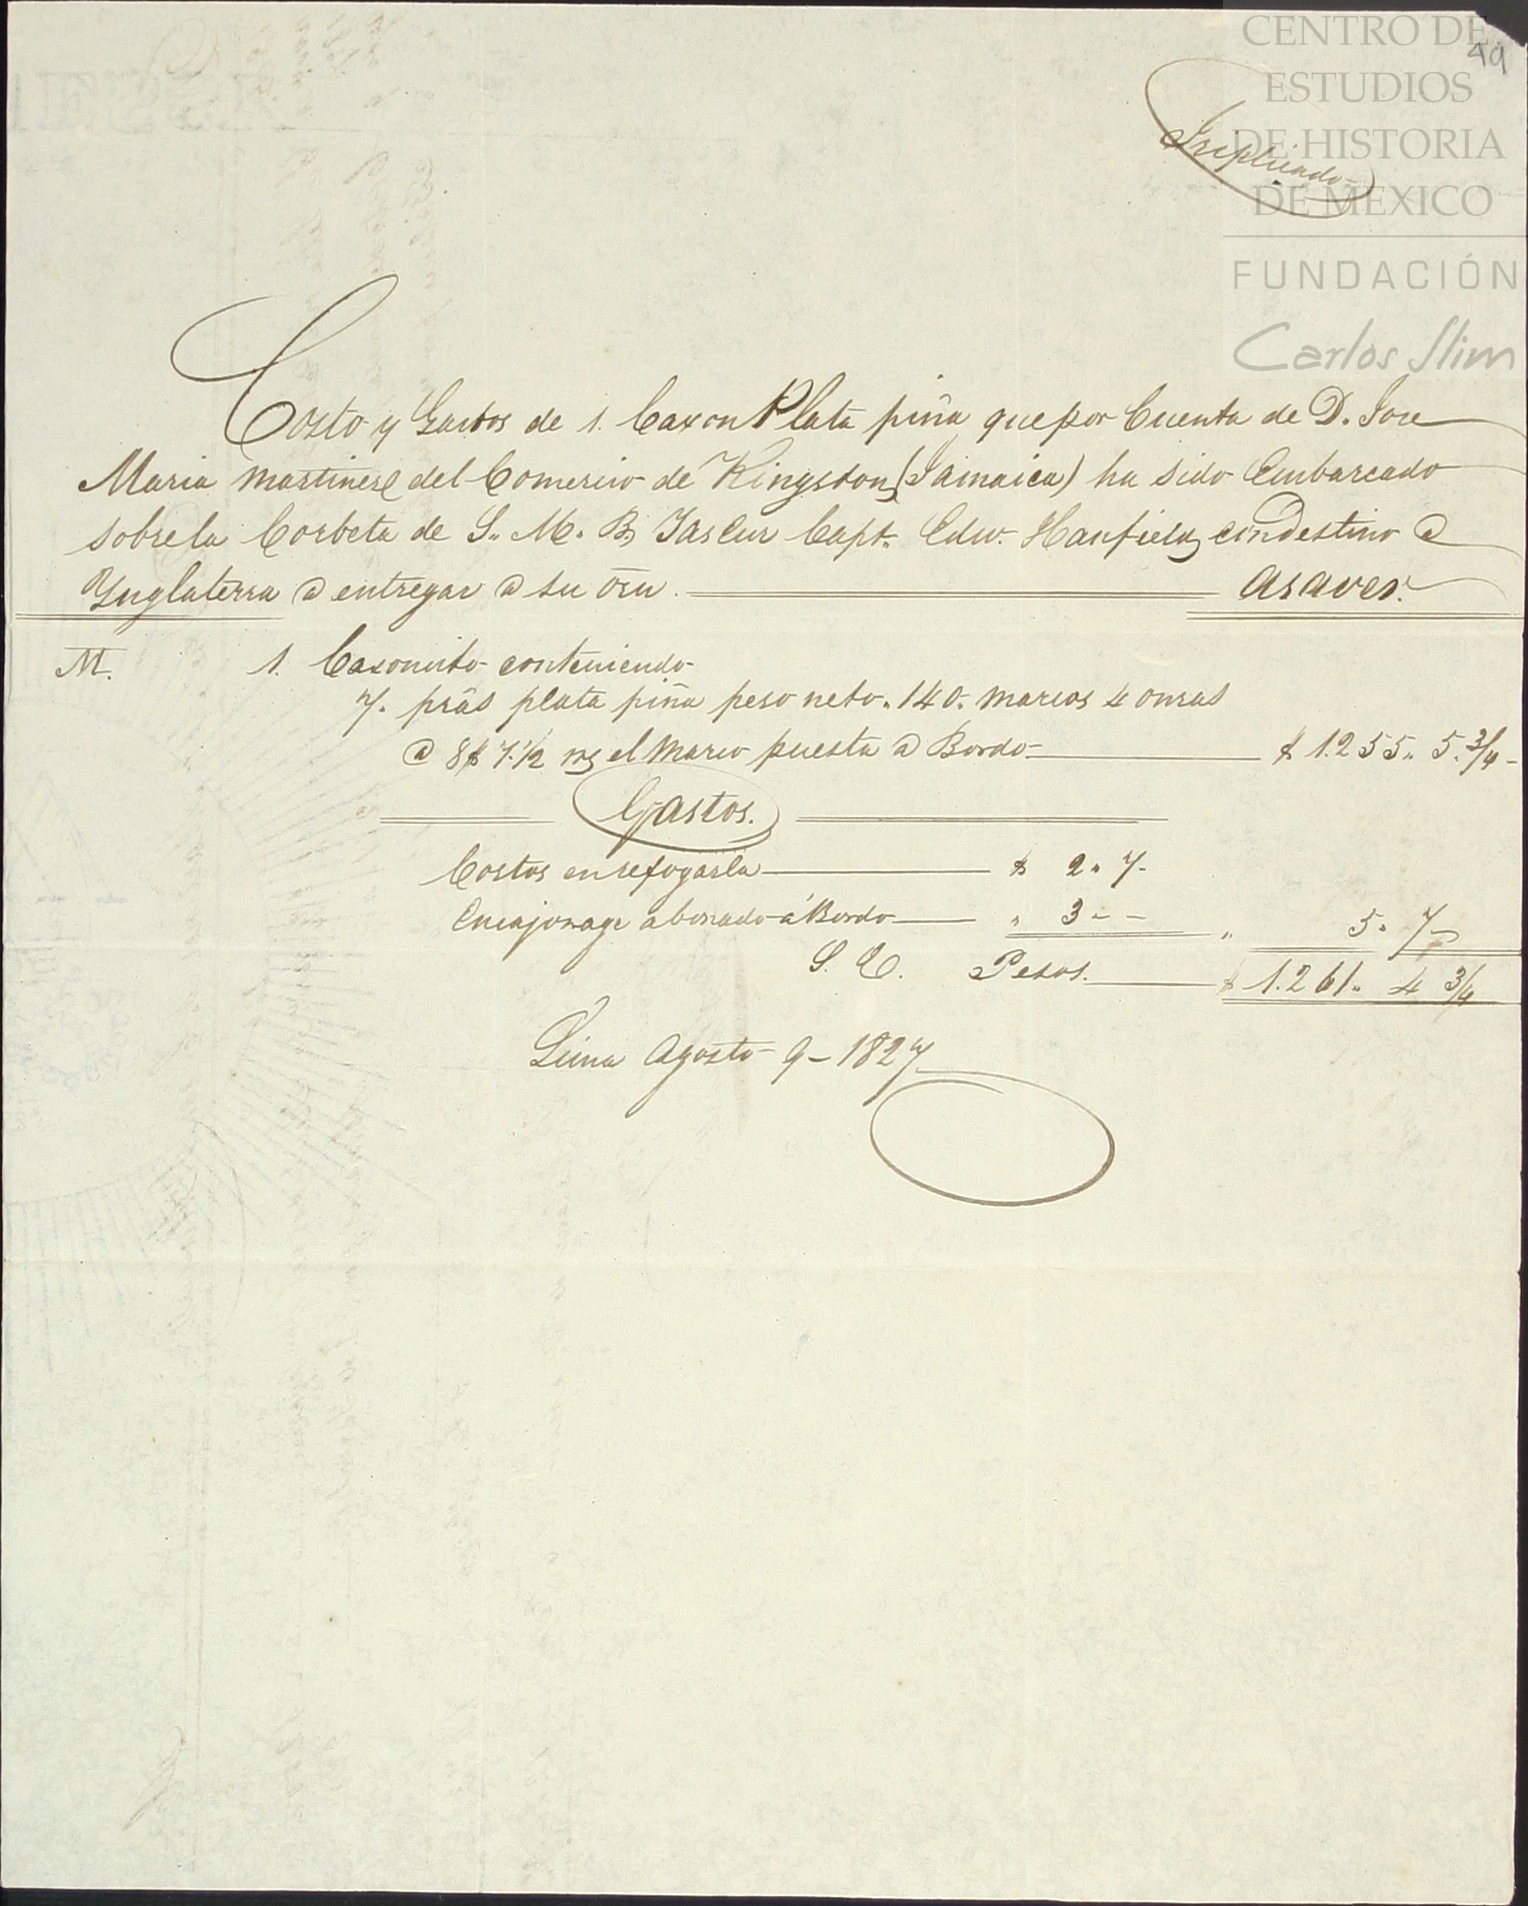 CENTRO DE
ESTUDIOS
DE HISTORIA
DE MEXICO
FUNDACIÓN
Carlos Slim
49
Triplicado
Costo y Gastos de 1. Caxon Plata piña que por Cuenta de D. Jose
Maria Martinez del Comercio de Kingston (Jamaica) ha sido Embarcado
sobre la Corbeta de S. M. B. Capt. Edw. con destino a
Ynglaterra a entregar a su orn. asaver.
M. 1. Caxoncito conteniendo
7. pñas plata piña peso neto. 140. marcos 4 onzas
a 8$ 7.1/2 rs el Marco puesta a Bordo $ 1.255.. 5.3/4
Gastos.
Costos en refogarla $ 2.. 7
Encajonage abonado á Bordo " 3 - - " 5.. 7
S. E. Pesos. $ 1.261.. 4 3/4
Lima Agosto 9 - 1827